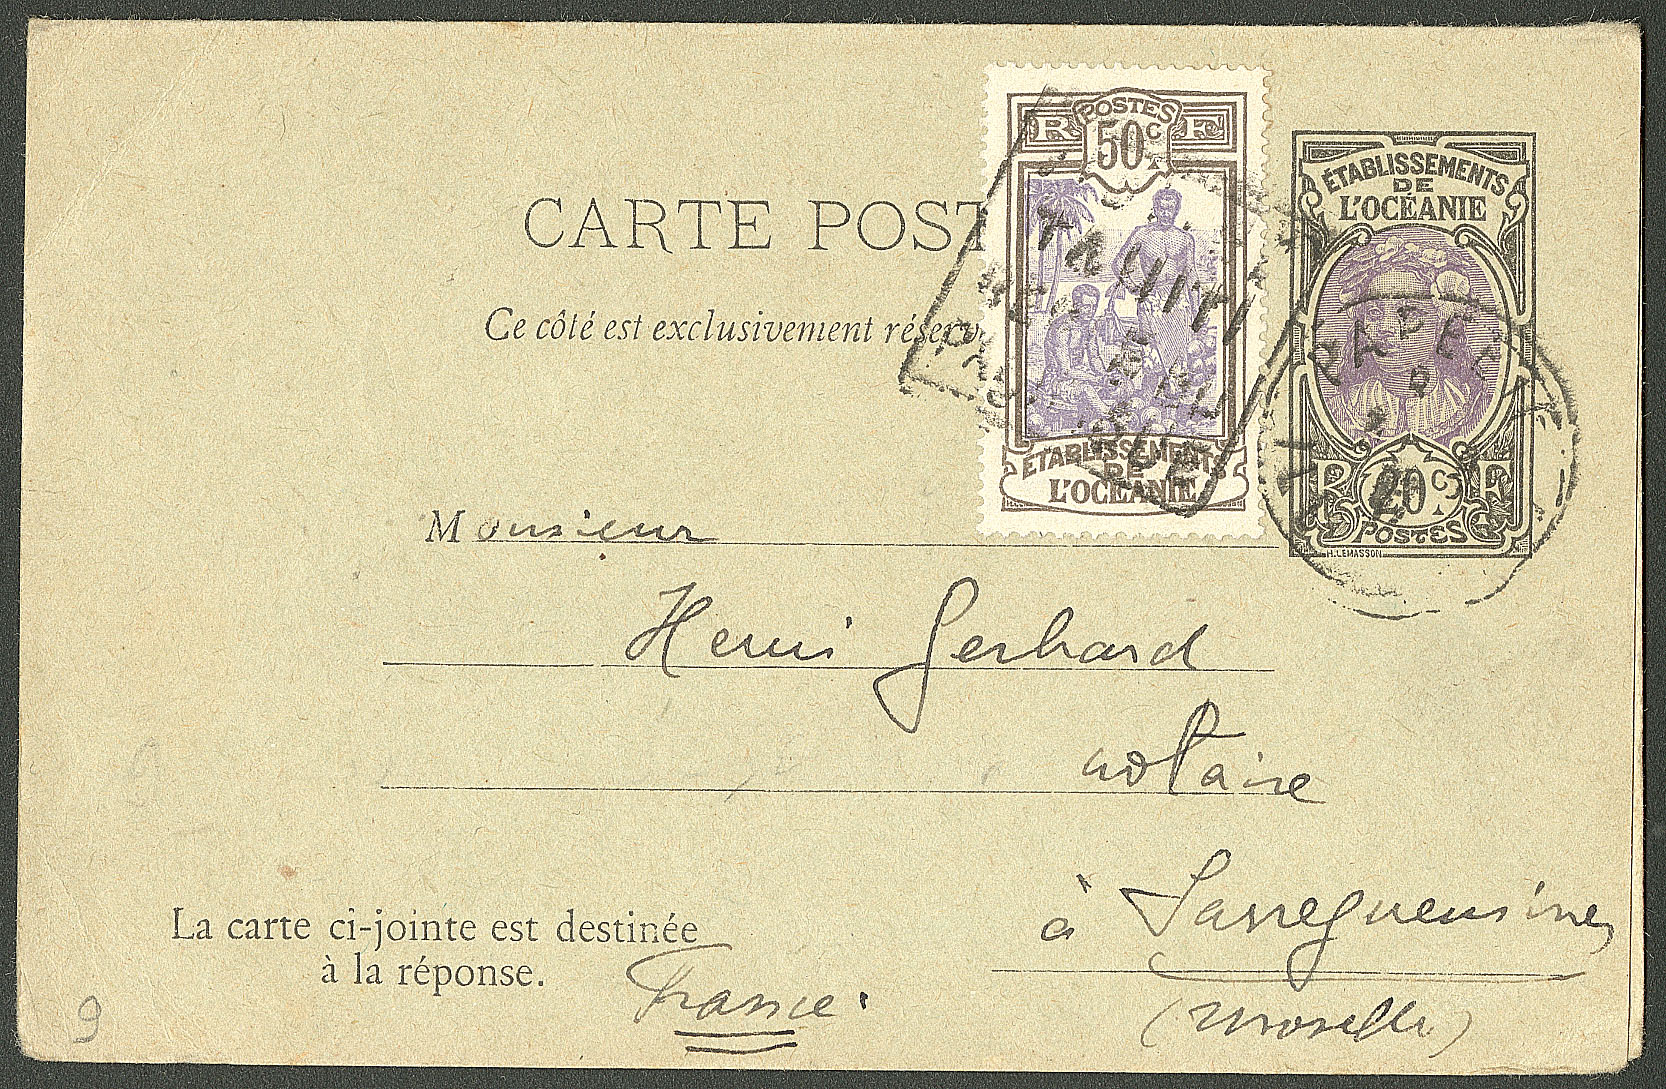 POSTES
R F
50c
ÉTABLISSEMENTS
DE
L'OCÉANIE
ÉTABLISSEMENTS
DE
L'OCÉANIE
R F
20c
POSTES
H. LEMASSON
PAPEETE
TAHITI
CARTE POST
Ce côté est exclusivement réserv
Monsieur
Henri Gerhard
notaire
à Sarreguemines
(Moselle)
La carte ci-jointe est destinée
à la réponse.
France.
9